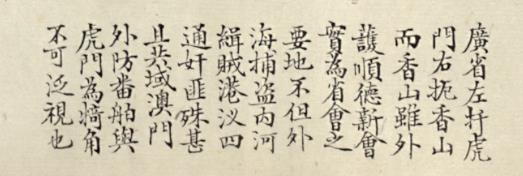 廣省左扞虎
門右扼香山
而香山雖外
護順德新會
實為省會之
要地不但外
海捕盗內河
緝賊港汊四
通奸匪殊甚
且共域澳門
外防番舶與
虎門為犄角
不可泛視也